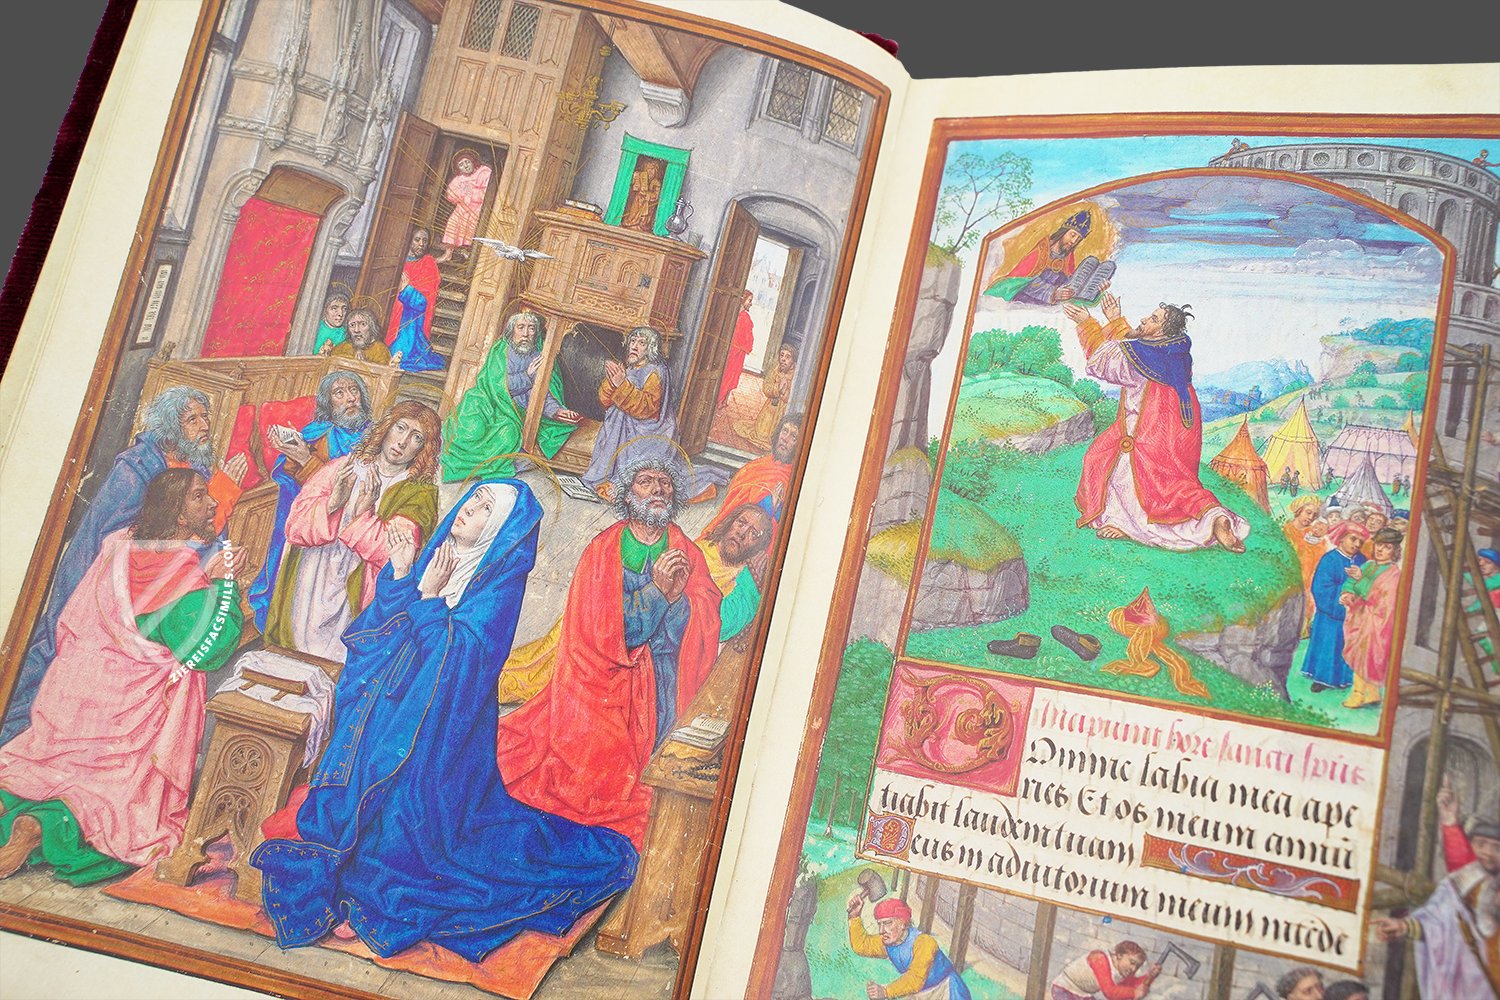 ZIEREISFACSIMILES.COM
Incipiunt hore sancti spūs
Domine labia mea ape
ries Et os meum annū
tiabit laudem tuam
Deus in adiutorium meum intēde